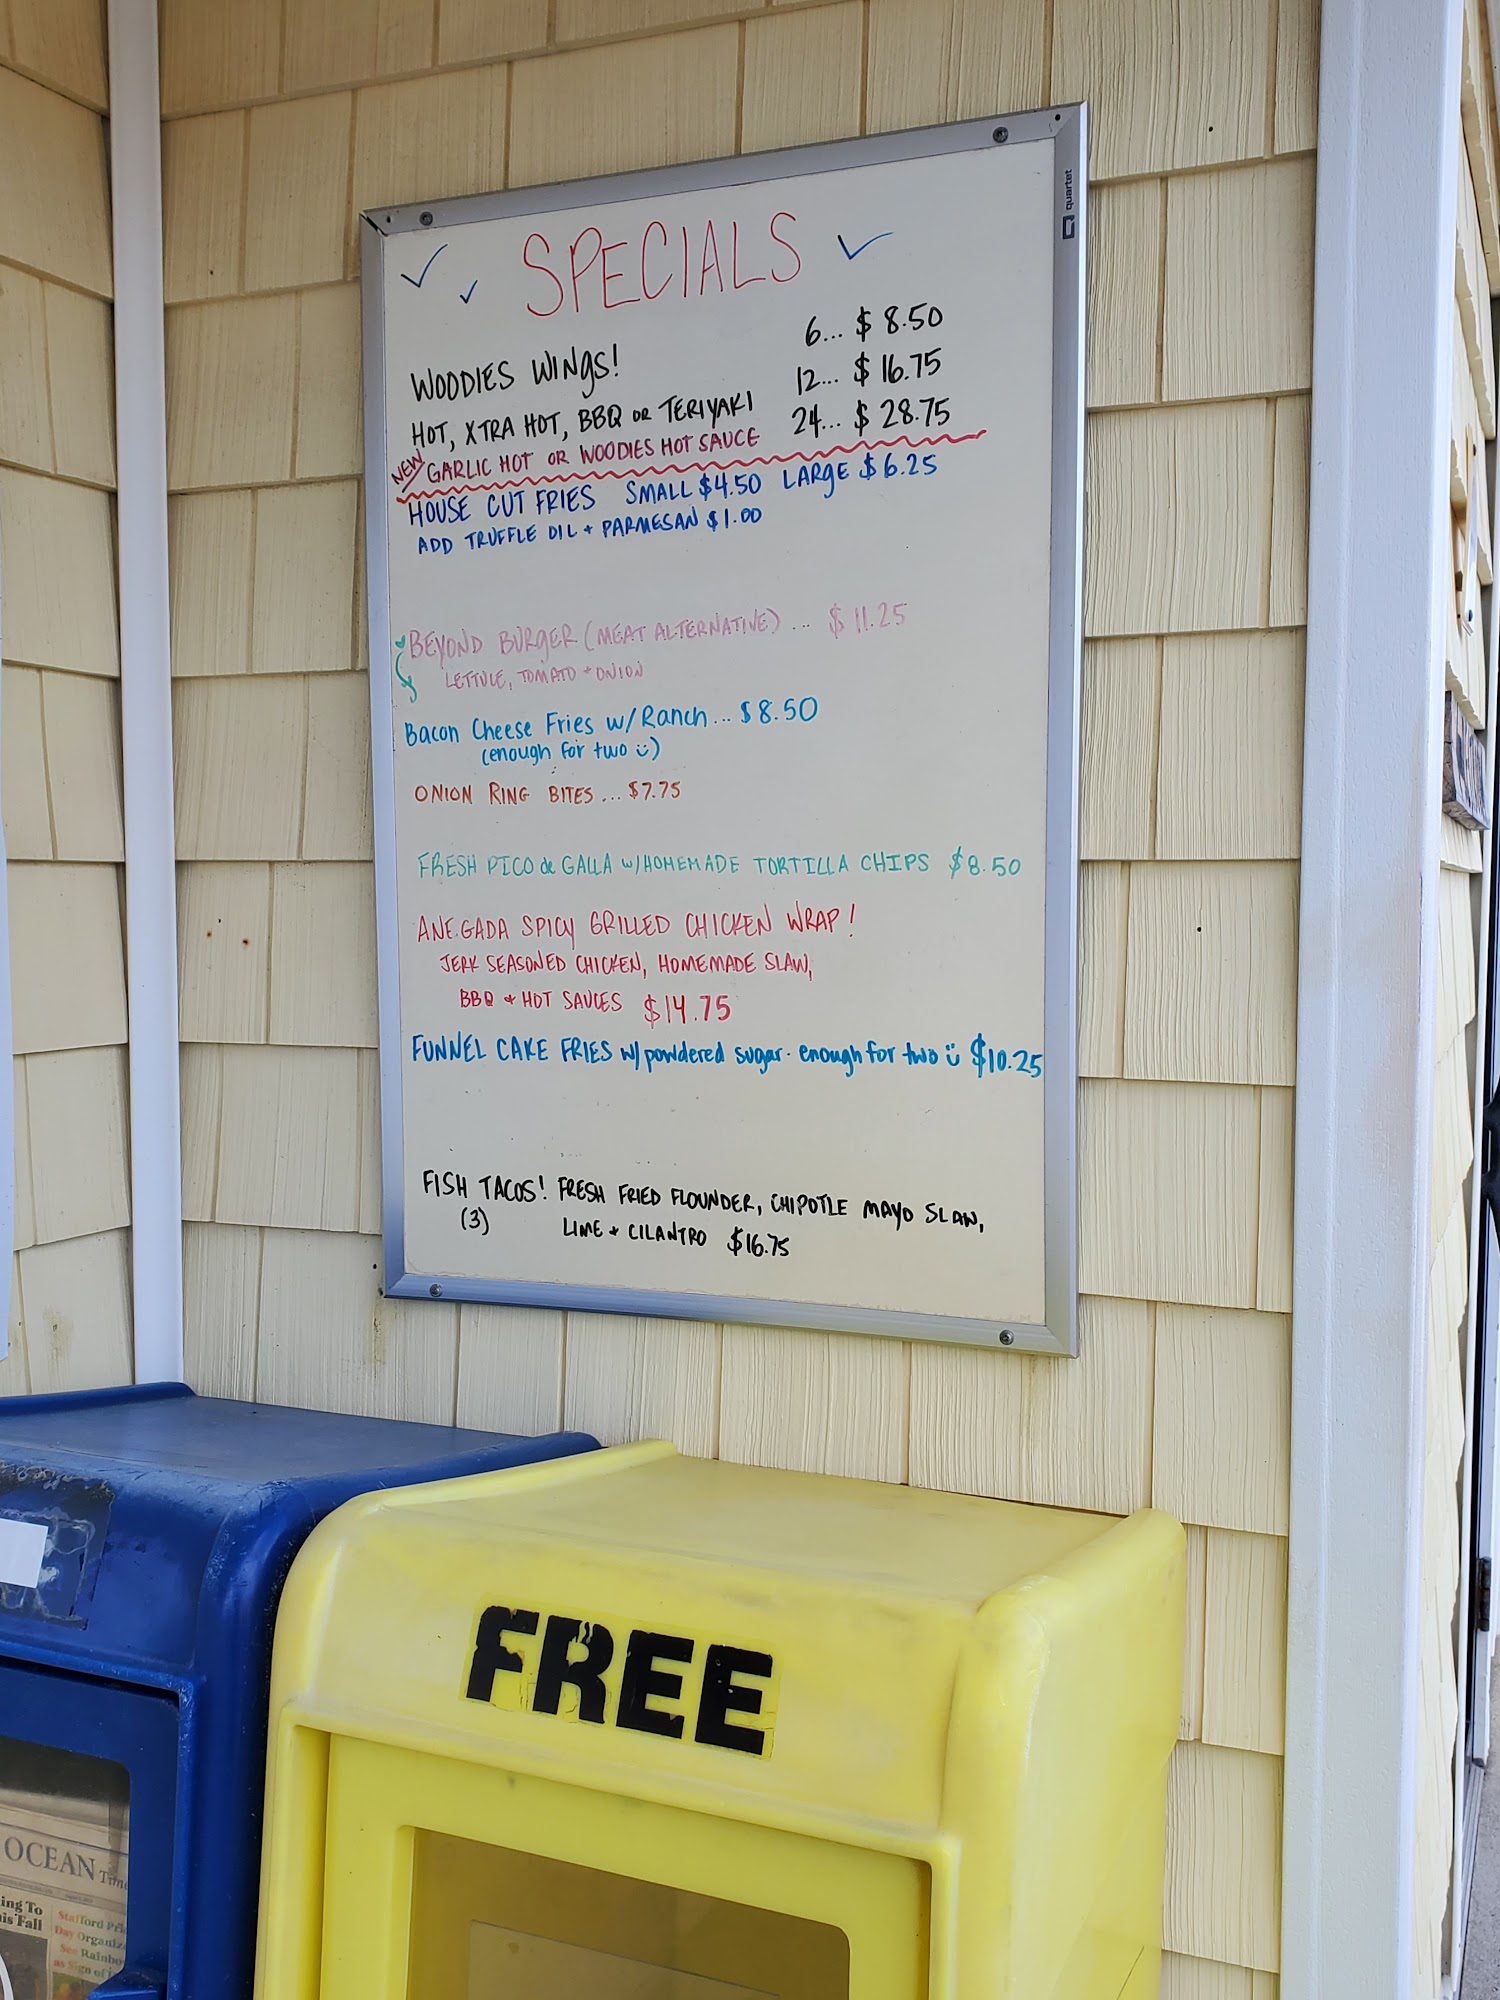 quartet
SPECIALS
WOODIES WINGS!
6... $ 8.50
12... $ 16.75
24... $ 28.75
HOT, XTRA HOT, BBQ OR TERIYAKI
NEW GARLIC HOT OR WOODIES HOT SAUCE
HOUSE CUT FRIES SMALL $4.50 LARGE $6.25
ADD TRUFFLE OIL + PARMESAN $1.00
BEYOND BURGER (MEAT ALTERNATIVE)... $ 11.25
LETTUCE, TOMATO + ONION
Bacon Cheese Fries w/Ranch... $8.50
(enough for two ü)
ONION RING BITES... $7.75
FRESH PICO de GALLA w/HOMEMADE TORTILLA CHIPS $8.50
ANEGADA SPICY GRILLED CHICKEN WRAP!
JERK SEASONED CHICKEN, HOMEMADE SLAW,
BBQ + HOT SAUCES $14.75
FUNNEL CAKE FRIES w/ powdered sugar. enough for two ü $10.25
FISH TACOS! FRESH FRIED FLOUNDER, CHIPOTLE MAYO SLAW,
(3) LIME + CILANTRO $16.75
FREE
OCEAN Time
ing To
is Fall
Stafford Pri
Day Organiz
See Rainbo
as Sign of